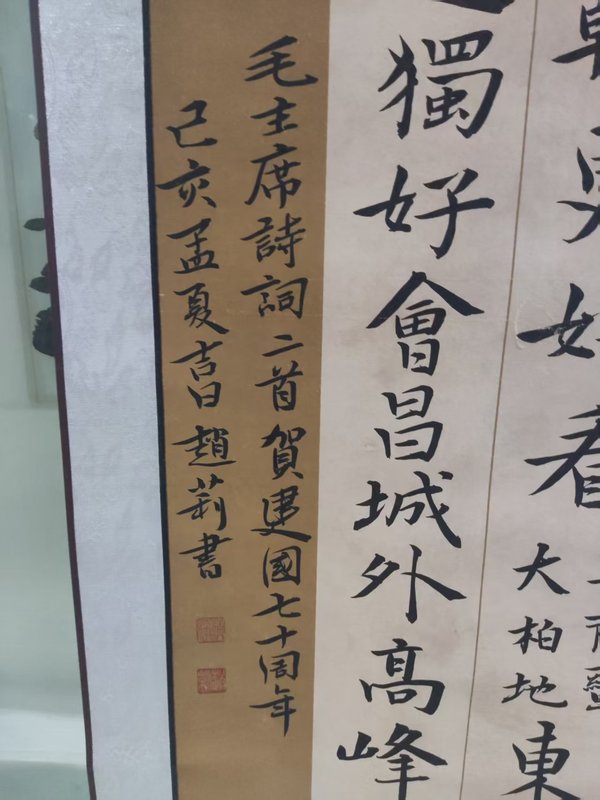 更好看
大柏地
東
獨好會昌城外高峰
毛主席詩詞二首賀建國七十周年
己亥孟夏吉日趙莉書